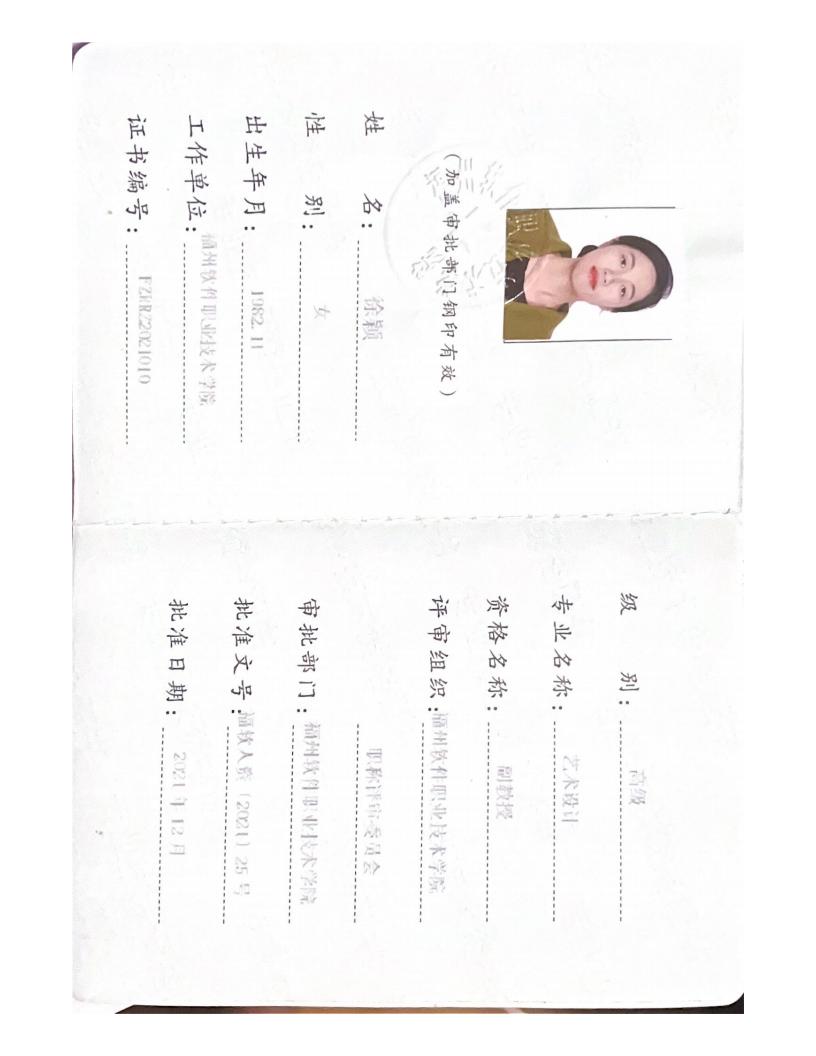 (加盖审批部门钢印有效)
姓 名: 徐颖
性 别: 女
出生年月: 1982.11
工作单位: 福州软件职业技术学院
证书编号: FZRJZ2021010
级 别: 高级
专业名称: 艺术设计
资格名称: 副教授
评审组织: 福州软件职业技术学院
职称评审委员会
审批部门: 福州软件职业技术学院
批准文号: 福软人资〔2021〕25号
批准日期: 2021年12月